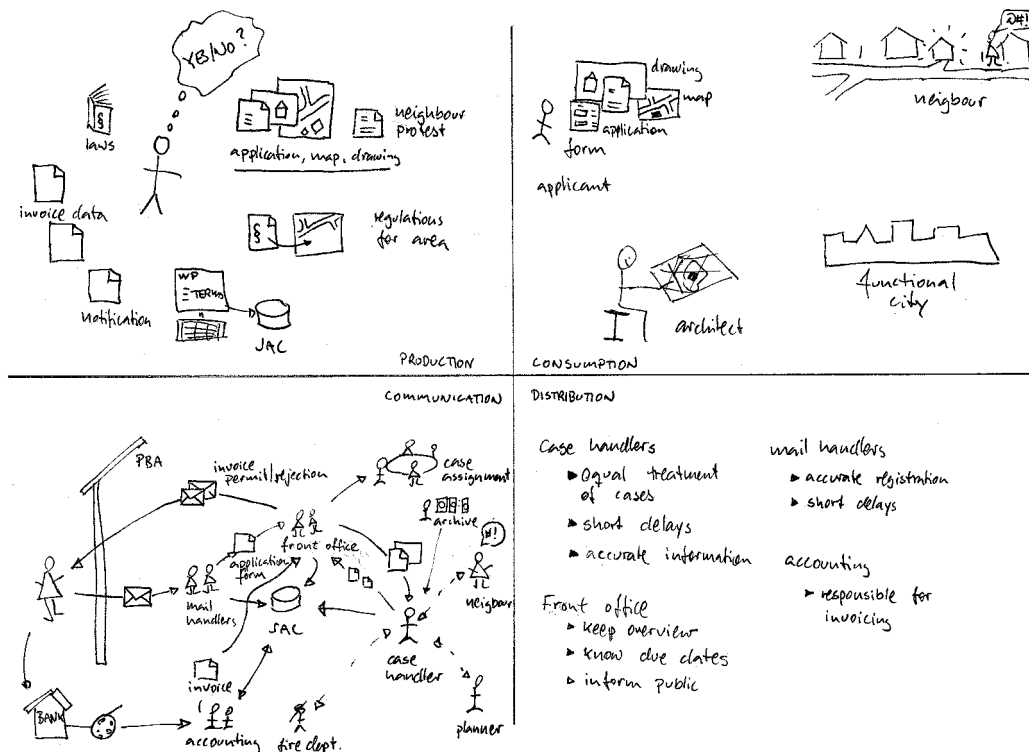 YES/NO?
laws
§
invoice data
notification
application, map, drawing
neighbour
protest
§
regulations
for area
WP
TERMS
SAC
PRODUCTION
drawing
map
application
form
applicant
@#!
neigbour
architect
functional
city
CONSUMPTION
COMMUNICATION
PBA
invoice
permit/rejection
case
assignment
archive
#!
front office
application
form
mail
handlers
SAC
neigbour
case
handler
invoice
BANK
accounting
fire dept.
planner
DISTRIBUTION
Case handlers
▸ equal treatment
of cases
▸ short delays
▸ accurate information
Front office
▸ keep overview
▸ know due dates
▸ inform public
mail handlers
▸ accurate registration
▸ short delays
accounting
▸ responsible for
invoicing